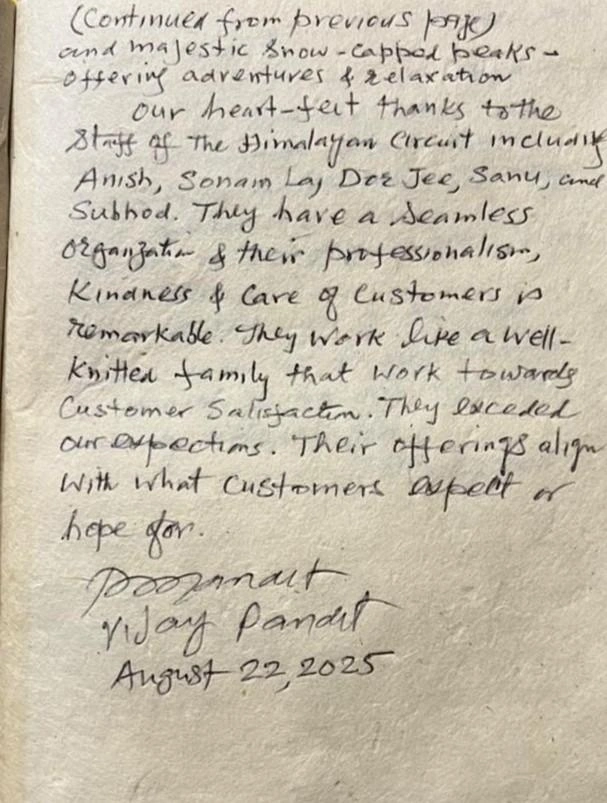 (Continued from previous page)
and majestic snow-capped peaks -
offering adventures & relaxation
our heart-felt thanks to the
Staff of The Himalayan Circuit including
Anish, Sonam La, Dor Jee, Sanu, and
Subhod. They have a seamless
organzation & their professionalism,
kindness & care of customers is
remarkable. They work like a well-
knitted family that work towards
Customer Satisfaction. They exceded
our expections. Their offerings align
with what customers expect or
hope for.
Vijay Pandit
August 22, 2025